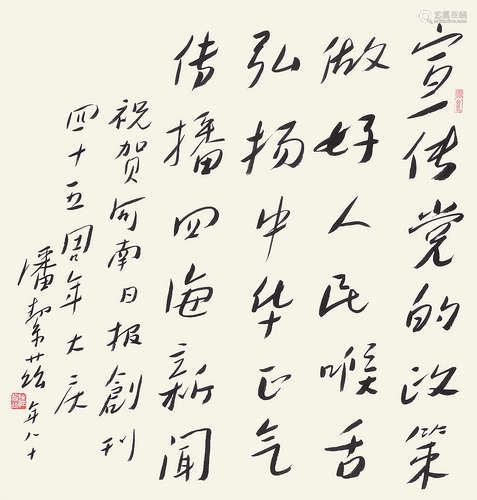 宣传党的政策
做好人民喉舌
弘扬中华正气
传播四海新闻
祝贺河南日报創刊
四十五周年大庆
潘絜兹 年八十